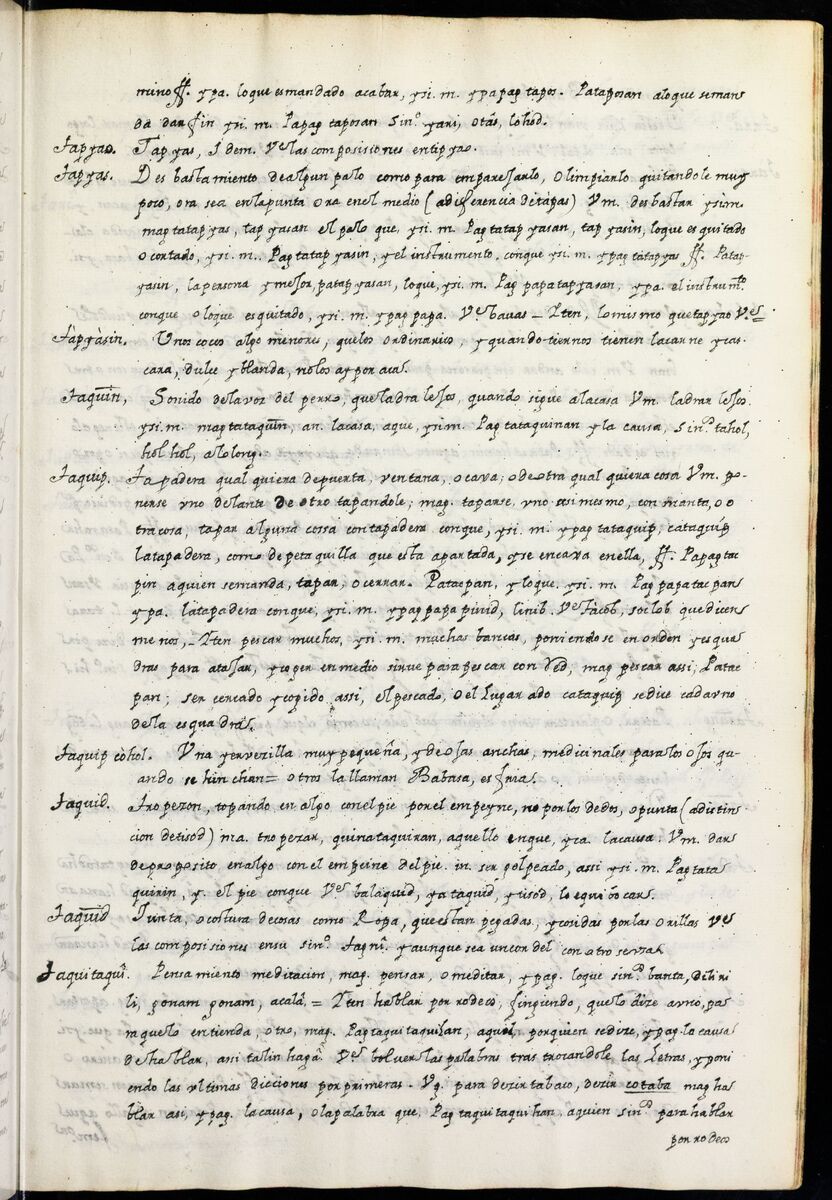 mino ff. y pa. lo que es mandado acabar, y si. m. y pa pag tapos. Pataposan a lo que se man=
da dar fin y si. m. Papag taposan Sin.º yari, otás, lohod.
Tapyao. Tap yas, Idem. Ves las composisiones en tipyao.
Tapyas. Des bastamiento de algun palo como para emparejarlo, o limpiarlo quitandole muy
poco, ora sea en la punta o ra en el medio (a diferencia de tapas) Vm. des bastar y si m.
mag tatap yas, tap yasan el palo que, y si. m. Pag tatap yasan, tap yasin, lo que es quitado
o cortado, y si. m. Pag tatap yasin, y el instrumento. con que y si. m. y pag tatap yas ff. Patap-
yasin, la persona y mejor, patap yasan, lo que, y si. m. Pag papatap yasan, y pa. el instrum.to
con que o lo que es quitado, y si. m. y pag papa. Ves bauas _ Iten, lo mismo que tapyao Ves=
Tapyàsin. Unos cocos algo menores, que los ordinarios, y quando tiernos tienen la carne y cas=
cara, dulce y blanda, no los ay por aca.
Taquin, Sonido de la voz del perro, que ladra lejos, quando sigue a la casa Vm. ladrar lejos
y si. m. mag tataquin, an. la casa, a que, y si m. Pag tataquinan y la causa, Sin.º tahol,
hol hol, alolong.
Taquip. Tapadera qual quiera de puerta, ventana, o cava, o de otra qual quiera cosa Vm. po-
nerse vno delante de otro tapandole; mag. taparse, vno asimesmo, con manta, o o
tra cosa, tapar alguna cossa con tapadera con que, y si. m. y pag tataquip, cataquip
la tapadera, como de petaquilla que esta apartada, y se encaxa en ella, ff. Papag tac
pin a quien se manda, tapar, o cerrar. Patacpan, y lo que, y si. m. Pag papa tac pan=
y pa. la tapadera con que, y si. m. y pag papa pinid, linib. Ves Tacob, soclob que dicen=
menos, _ Iten pescar muchos, y si. m. muchas bancas, poniendose en orden y esqua=
dras para atajar, y coger en medio sirue para pescar con Red, mag pescar assi, Patac
pan; ser cercado y cogido, assi, el pescado, o el lugar ado cataquip se dice cada vno
de la esquadras.
Taquip còhol. Vna yervezilla muy pequeña, y de ojas anchas, medicinales para los ojos qu-
ando se hinchan= otros la llaman Babasa, es fria.
Taquid. Tropezon, topando en algo con el pie por el empeyne, no por los dedos, o punta (a distin=
cion de tisod) ma. tropezar, quinataquiran, aquello en que, y ca. la causa: Vm. dar=
de proposito en algo con el empeine del pie. in. ser golpeado, assi y si. m. Pag tata=
quirin, y. el pie con que Ves balaquid, ya taquid, y tisod, lo equibocan.
Taquid Iunta, o costura de cosas como Ropa, que estan pegadas, y cosidas por las orillas Ves
las composisiones en su sin.º Tagni. y aunque sea un cordel con otro se vsa
Taquitaqui. Pensamiento meditacion, mag. pensar, o meditar, y pag. lo que sin.º banta, dili ni
li, gonam gonam, acala, = Iten hablar por rodeos, fingiendo, que lo dize a vno, pa=
ra que lo entienda, otro, mag. Pag taquitaquihan, aquel, por quien se dize, y pag. la causa=
de hablar, assi talinhaga. Ves bolver las palabras tras trocandole, las Letras, y poni=
endo las vltimas dicciones por primeras. Vg. para dezir tabaco, dezir cotaba mag ha=
blar asi, y pag. la causa, o la palabra que, Pag taquitaqui han, a quien sin.º para hablar
por rodeo